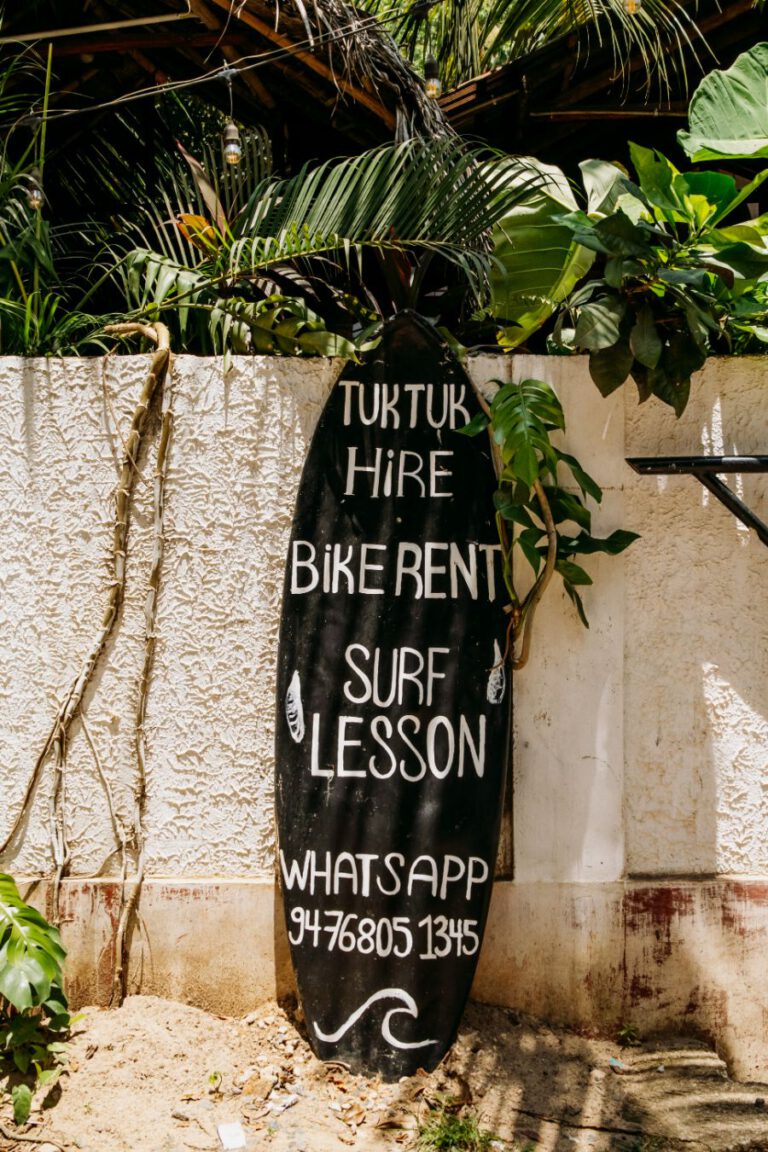 TUKTUK
HiRE
BiKE RENT
SURF
LESSON
WHATSAPP
94768051345